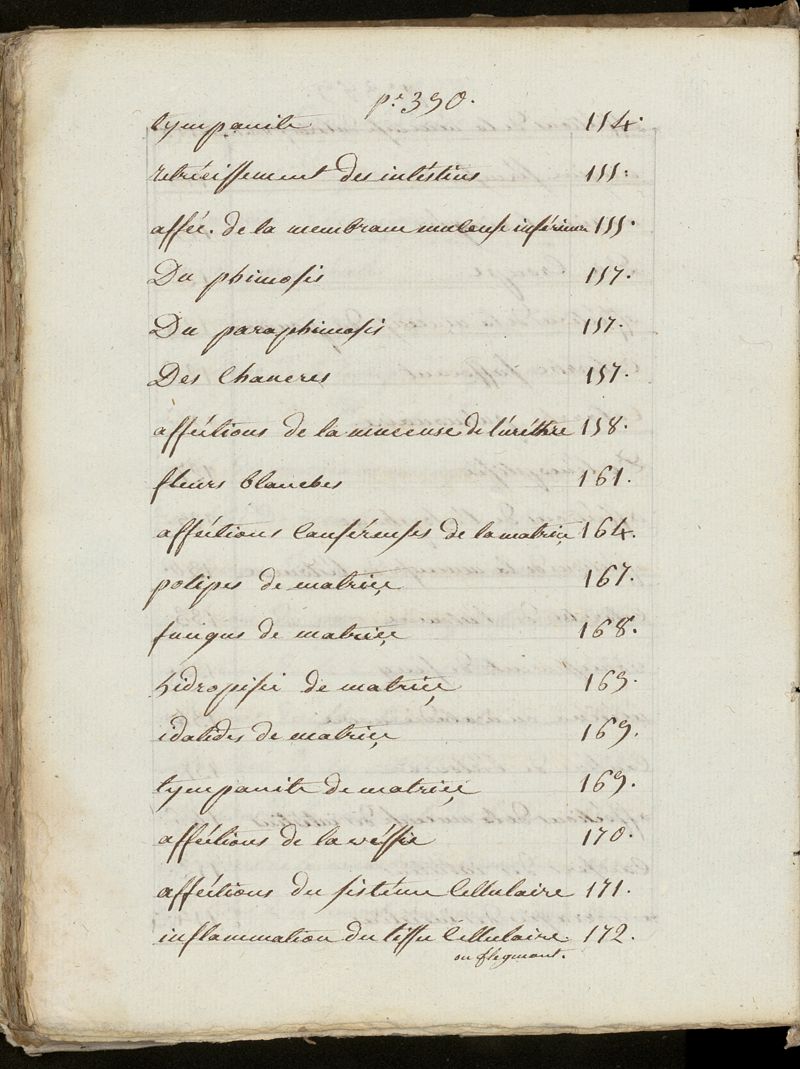 pe. 390.
tympanite 154.
retrécissement des intéstins 155.
afféc. de la membrane muleuse inférieure 155.
Du phimosis 157.
Du paraphimosis 157.
Des Chancres 157.
afféctions de la muceuse de l'uréthre 158.
fleurs blanches 161.
afféctions Cansérenses de la matrice 164.
polipes de matrice 167.
fungus de matrice 168.
hidropisie de matrice 169.
idatides de matrice 169.
tympanite de matrice 169.
afféctions de la véssie 170.
afféctions du sistéme Cellulaire 171.
inflammation du tissu Cellulaire 172.
ou flegmont.